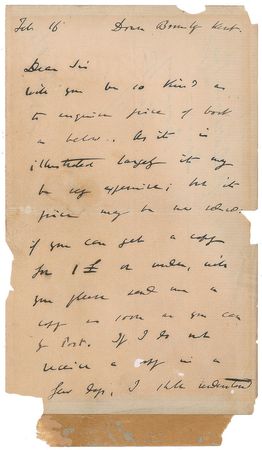 Feb 16 Down Bromley Kent.
Dear Sir
Will you be so kind as
to enquire price of book
as below. As it is
illustrated largely it may
be very expensive; but its
price may be now reduced.
if you can get a copy
for 1 £ or under, will
you please send me a
copy as soon as you can
by Post. If I do not
receive a copy in a
few days, I shall understand